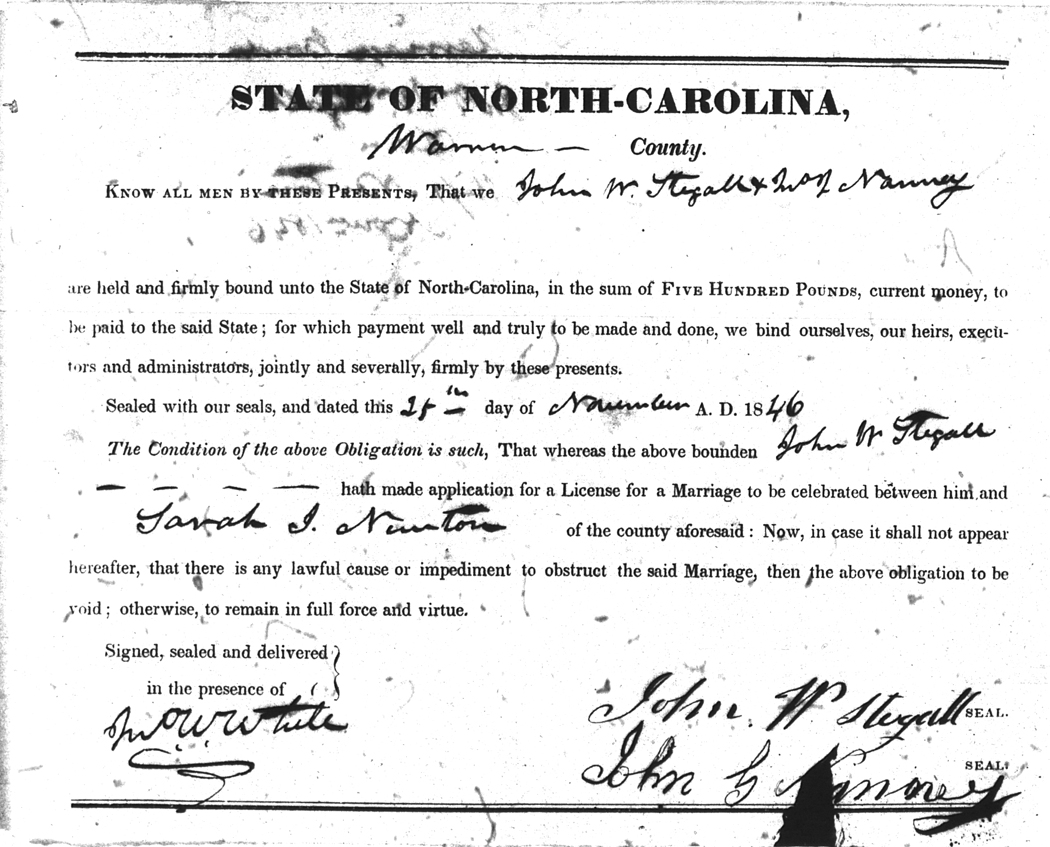 STATE OF NORTH-CAROLINA,
Warren — County.
KNOW ALL MEN BY THESE PRESENTS, That we John W. Stegall & Jno J Nanney
are held and firmly bound unto the State of North-Carolina, in the sum of FIVE HUNDRED POUNDS, current money, to
be paid to the said State; for which payment well and truly to be made and done, we bind ourselves, our heirs, execu-
tors and administrators, jointly and severally, firmly by these presents.
Sealed with our seals, and dated this th day of November A. D. 1846
The Condition of the above Obligation is such, That whereas the above bounden John W Stegall
— — — — hath made application for a License for a Marriage to be celebrated between him and
Sarah J. Newton of the county aforesaid: Now, in case it shall not appear
hereafter, that there is any lawful cause or impediment to obstruct the said Marriage, then the above obligation to be
void; otherwise, to remain in full force and virtue.
Signed, sealed and delivered
in the presence of
Jno W White
John W Stegall SEAL.
John G Nanney SEAL.